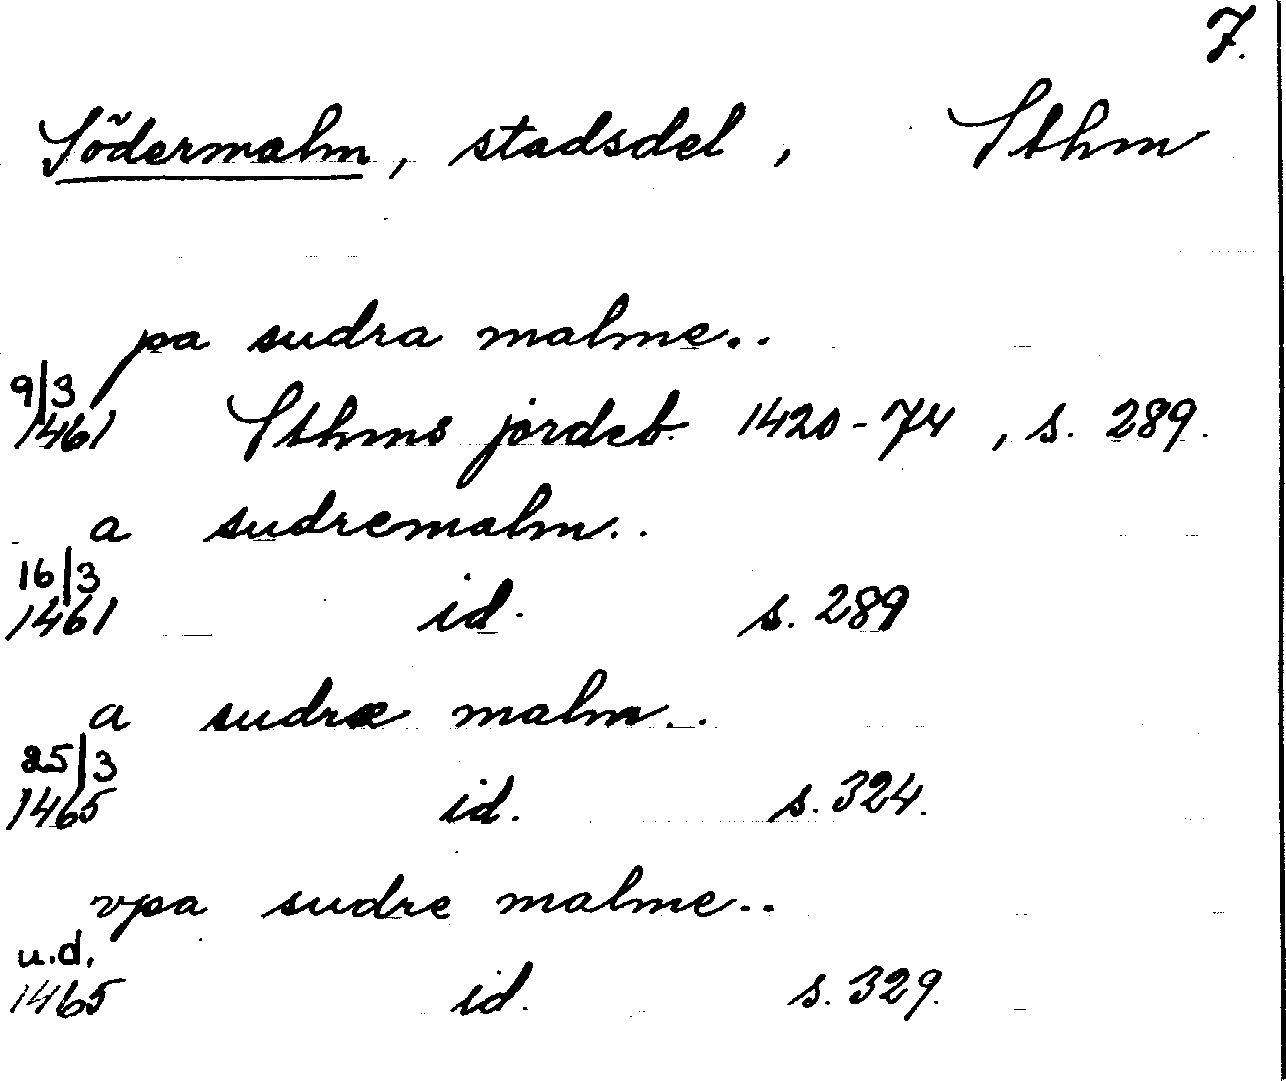 7.
Södermalm, stadsdel, Sthm
pa sudra malme..
9/3
1461 Sthms jordeb. 1420-74, s. 289.
a sudremalm..
16/3
1461 id. s. 289
a sudræ malm..
25/3
1465 id. s. 324.
vpa sudre malme..
u.d.
1465 id. s. 329.